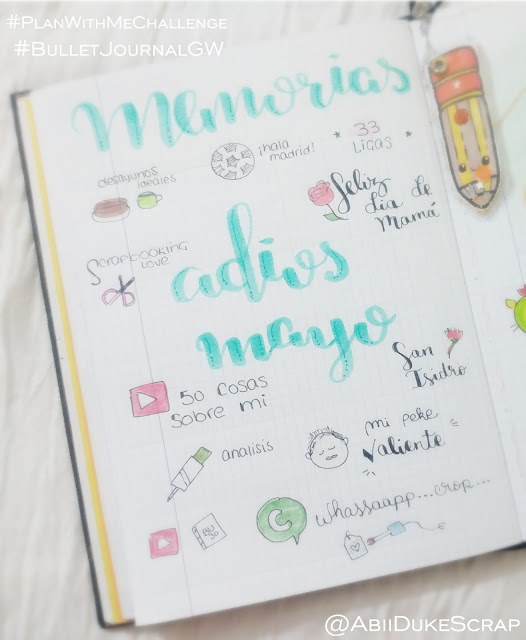 #PlanWithMeChallenge
#BulletJournalGW
Memorias
desayunos
ideales
¡hala
madrid!
33
Ligas
Feliz
día de
Mamá
Scrapbooking
love
adios
mayo
San
Isidro
50 cosas
sobre mi
analisis
mi peke
Valiente
BUJO
whassaapp...crop...
@AbiiDukeScrap